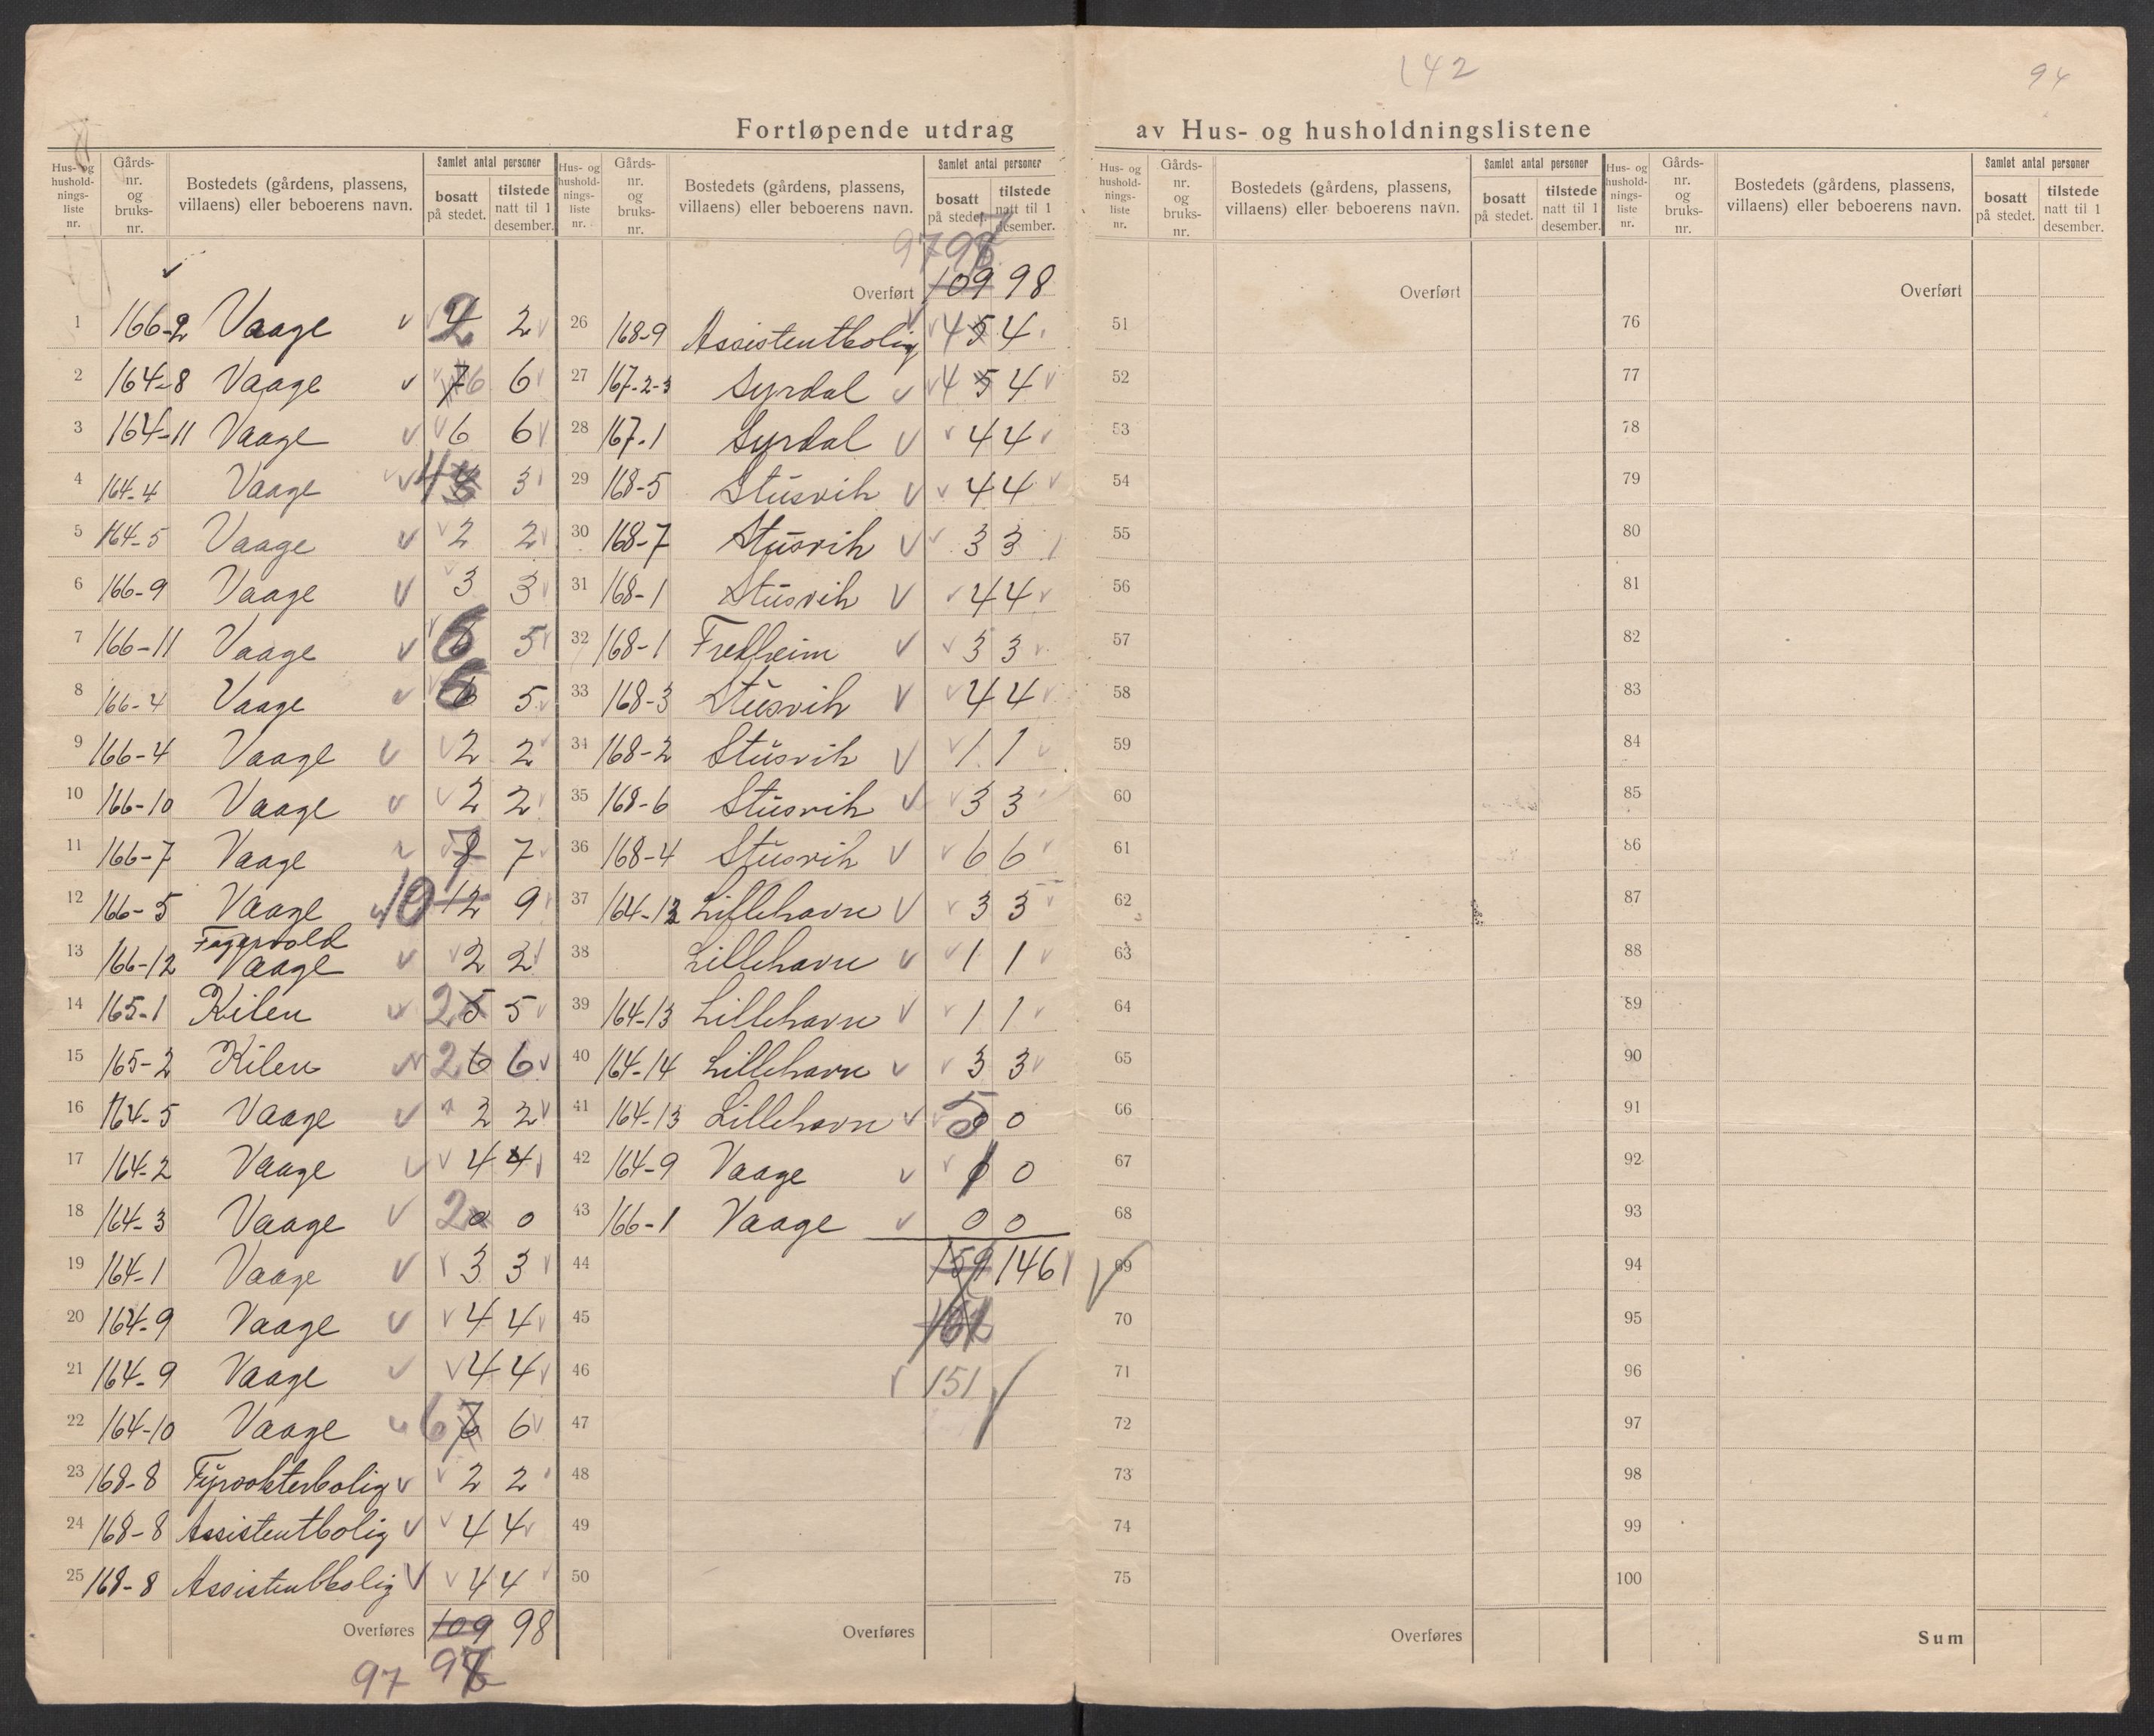 142
94
Fortløpende utdrag av Hus- og husholdningslistene
Hus- og husholdnings-liste nr. | Gårds-nr. og bruks-nr. | Bostedets (gårdens, plassens, villaens) eller beboerens navn. | Samlet antal personer | bosatt på stedet. | tilstede natt til 1 desember.
1 166-2 Vaage 4 2 2
2 164-8 Vaage 7 6 6
3 164-11 Vaage 6 6
4 164-4 Vaage 4 3
5 164-5 Vaage 2 2
6 166-9 Vaage 3 3
7 166-11 Vaage 6 5
8 166-4 Vaage 6 5
9 166-4 Vaage 2 2
10 166-10 Vaage 2 2
11 166-7 Vaage 7 8 7
12 166-5 Vaage 10 12 9
13 166-12 Fagervold Vaage 2 2
14 165-1 Kilen 2 5 5
15 165-2 Kilen 2 6 6
16 164-5 Vaage 2 2
17 164-2 Vaage 4 4
18 164-3 Vaage 2 0 0
19 164-1 Vaage 3 3
20 164-9 Vaage 4 4
21 164-9 Vaage 4 4
22 164-10 Vaage 6 7 6
23 168-8 Fyrvokterbolig 2 2
24 168-8 Assistentbolig 4 4
25 168-8 Assistentbolig 4 4
Overføres 109 98
97 97
Hus- og husholdnings-liste nr. | Gårds-nr. og bruks-nr. | Bostedets (gårdens, plassens, villaens) eller beboerens navn. | Samlet antal personer | bosatt på stedet. | tilstede natt til 1 desember.
97 98
Overført 109 98
26 168-9 Assistentbolig 4 5 4
27 167-2-3 Syrdal 4 5 4
28 167-1 Syrdal 4 4
29 168-5 Stusvik 4 4
30 168-7 Stusvik 3 3
31 168-1 Stusvik 4 4
32 168-1 Fredheim 3 3
33 168-3 Stusvik 4 4
34 168-2 Stusvik 1 1
35 168-6 Stusvik 3 3
36 168-4 Stusvik 6 6
37 164-13 Lillehavn 3 3
38 Lillehavn 1 1
39 164-13 Lillehavn 1 1
40 164-14 Lillehavn 3 3
41 164-13 Lillehavn 5 0 0
42 164-9 Vaage 1 0
43 166-1 Vaage 0 0
44 159 146
45
46 151
47
48
49
50
Overføres
Hus- og husholdnings-liste nr. | Gårds-nr. og bruks-nr. | Bostedets (gårdens, plassens, villaens) eller beboerens navn. | Samlet antal personer | bosatt på stedet. | tilstede natt til 1 desember.
Overført
51
52
53
54
55
56
57
58
59
60
61
62
63
64
65
66
67
68
69
70
71
72
73
74
75
Overføres
Hus- og husholdnings-liste nr. | Gårds-nr. og bruks-nr. | Bostedets (gårdens, plassens, villaens) eller beboerens navn. | Samlet antal personer | bosatt på stedet. | tilstede natt til 1 desember.
Overført
76
77
78
79
80
81
82
83
84
85
86
87
88
89
90
91
92
93
94
95
96
97
98
99
100
Sum